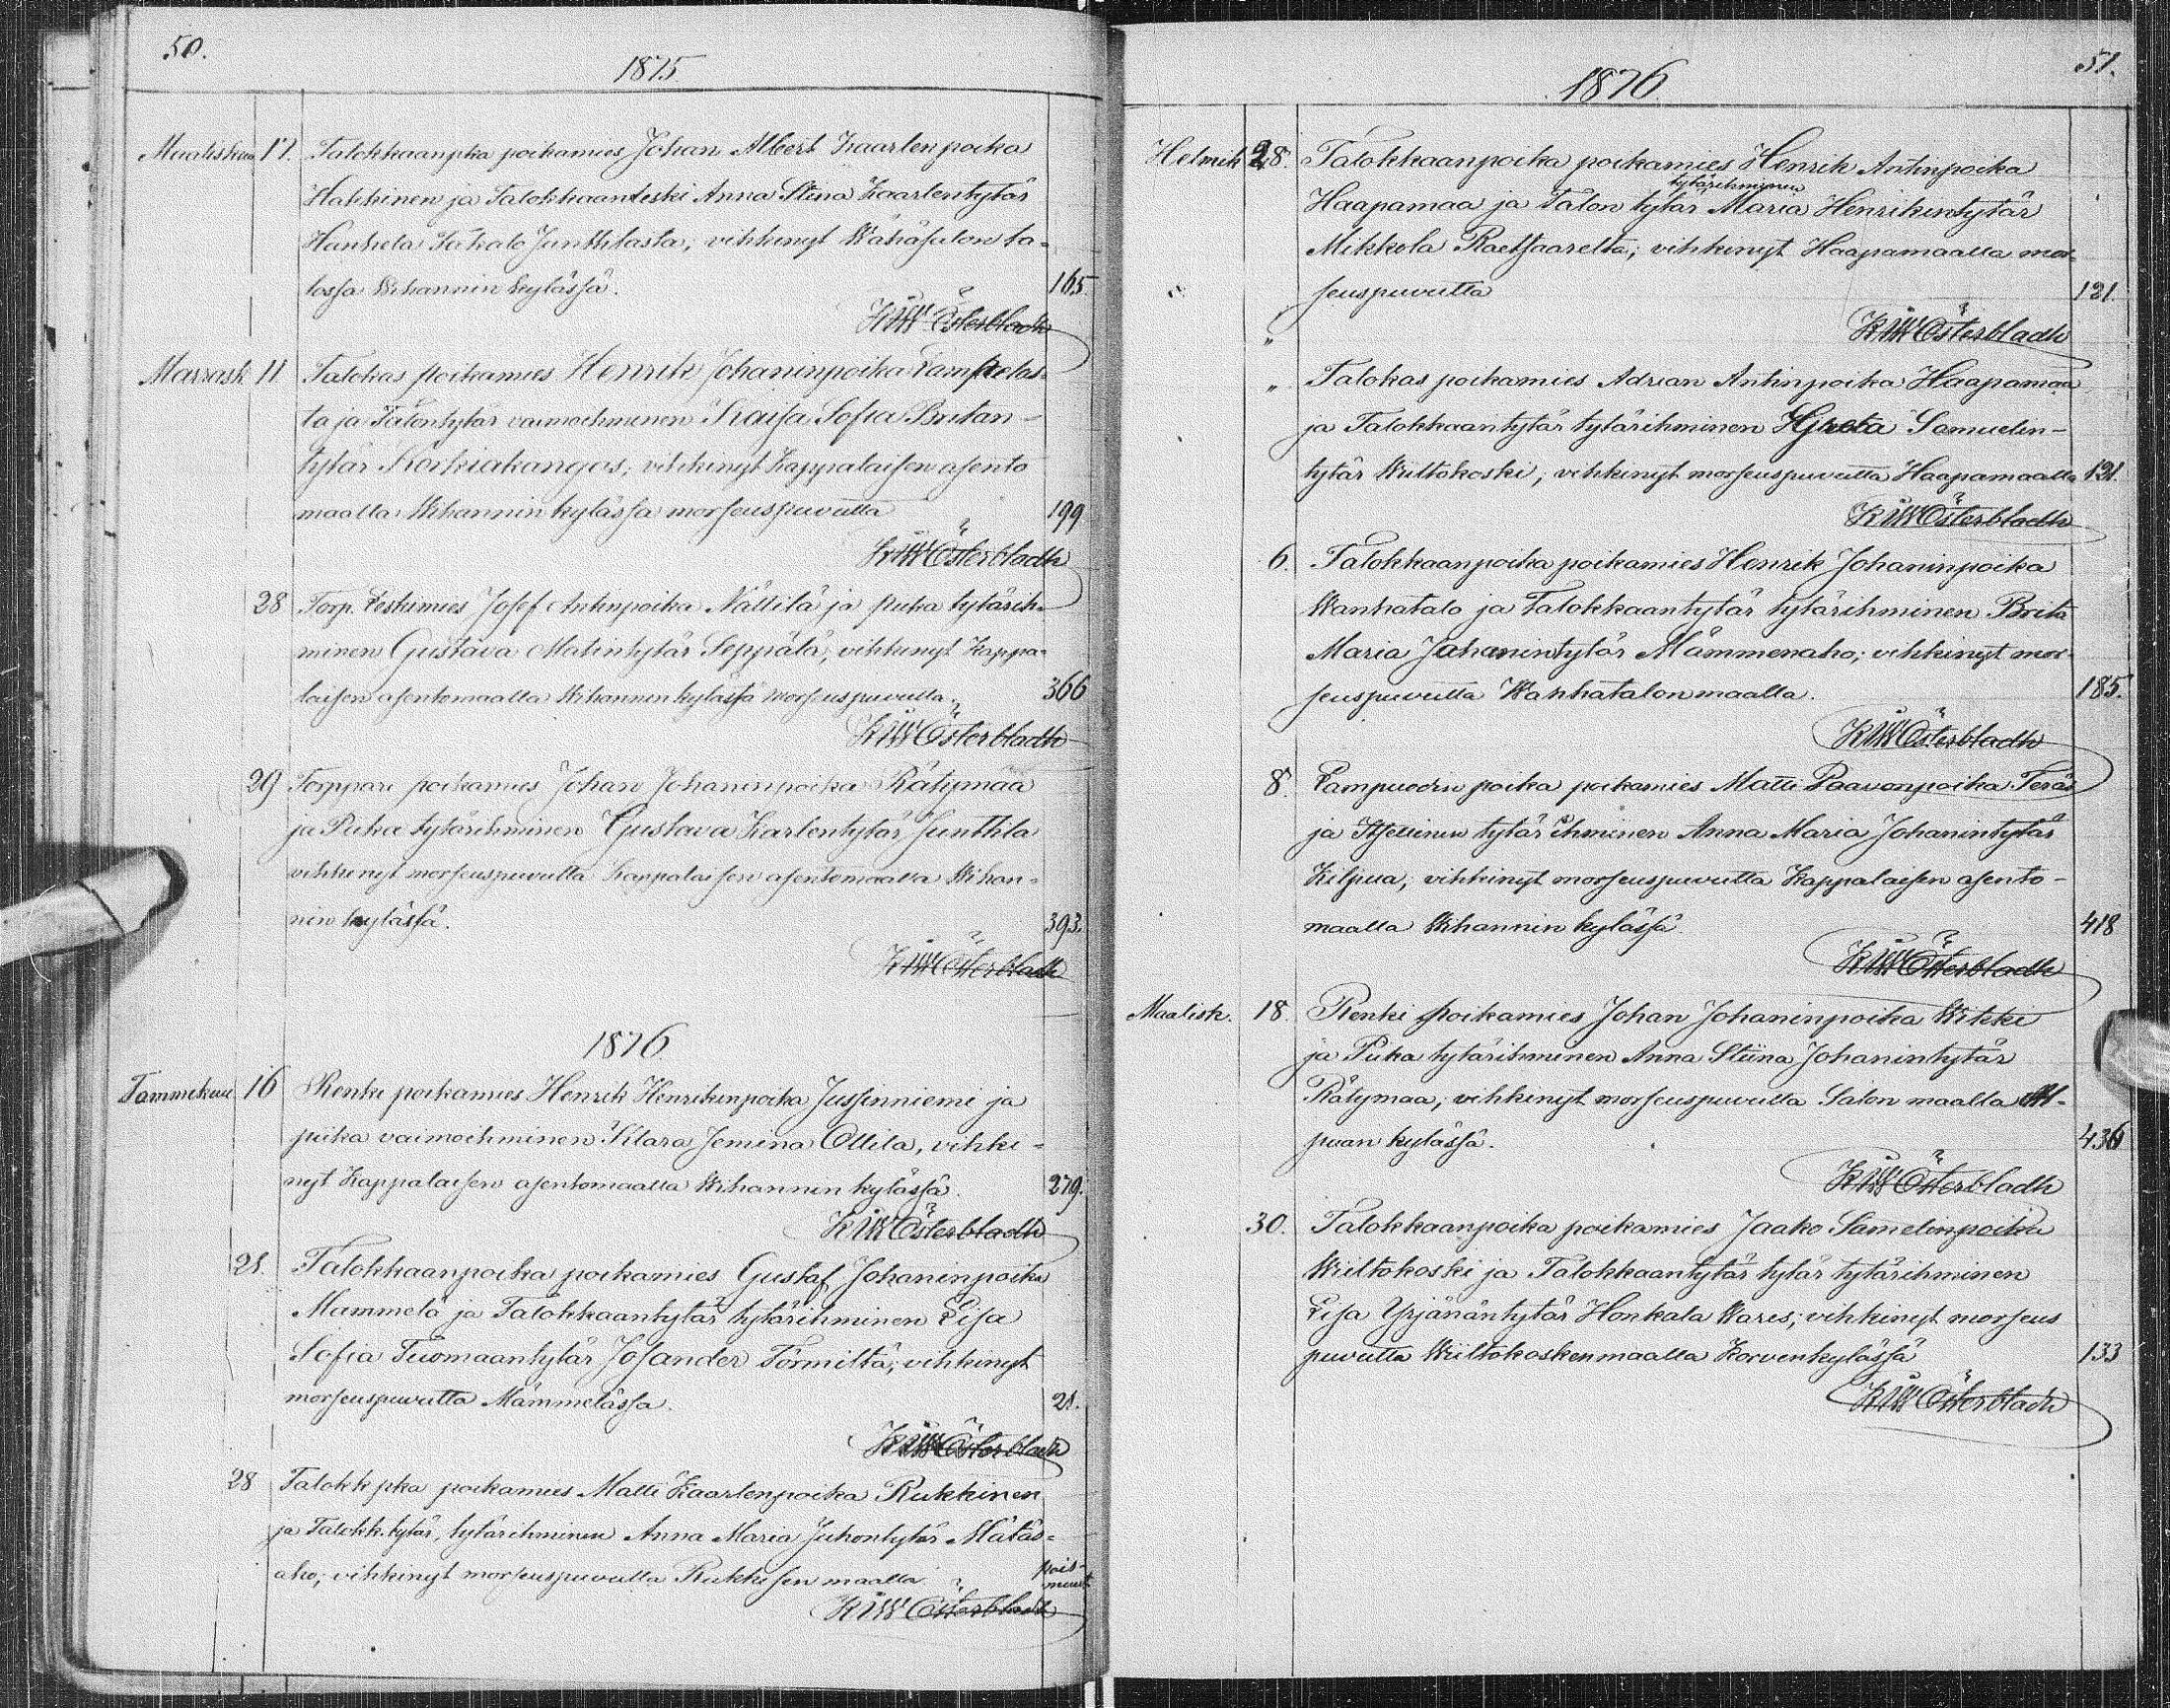 50.
1875
Maaliskuu 17. Talokkaanpka poikamies Johan Albert Kaarlenpoika
Hakkinen ja Talokkaanleski Anna Stina Kaarlentytär
Hankela Junttilasta, vihkinyt Wähäsalon ta-
lossa Wihannin kylässä. 165
K W Österbladh
Marrask 11 Talokas poikamies Henrik Johaninpoika Lampelos-
ta ja Talontytär vaimoihminen Kaisa Sofia Pritan-
tytär Korkiakangas; vihkinyt Kappalaisen asento
maalla Wihannin kylässä morseuspuvutta 199
K W Österbladh
28 Torp. Leskimies Josef Antinpoika Nättilä ja piika tytärih-
minen Gustava Matintytär Seppälä, vihkinyt Kappa-
laisen asentomaalla Wihannin kylässä morseuspuvutta. 366
K W Österbladh
29 Torppari poikamies Johan Johaninpoika Rätymaa
ja Piika tytärihminen Gustava Karlentytär Junttila
vihkinyt morseuspuvutta Kappalaisen asentomaalla Wihan-
nin kylässä. 393.
K W Österbladh
1876
Tammikuu 16 Renki poikamies Henrik Henrikinpoika Jussinniemi ja
piika vaimoihminen Klara Jemina Ollila, vihki-
nyt Kappalaisen asentomaalla Wihannin kylässä. 279.
K W Österbladh
21. Talokkaanpoika poikamies Gustaf Johaninpoika
Mammelä ja Talokkaantytär tytärihminen Lisa
Sofia Tuomaantytär Josander Törmiltä; vihkinyt
morseuspuvutta Mämmelässä. 21.
K W Österbladh
28 Talokk pka poikamies Matti Kaarlenpoika Rukkinen
ja Talokk. tytär, tytärihminen Anna Maria Juhontytär Mätäs-
aho; vihkinyt morseuspuvutta Rukkisen maalla. pois-
muut
K W Österbladh
51.
1876.
Helmik 28. Talokkaanpoika poikamies Henrik Antinpoika
tytärihminen
Haapamaa ja Talon tytär Maria Henrikintytär
Mikkola Raetsaarelta; vihkinyt Haapamaalla mor-
seuspuvutta 121.
K W Österbladh
" Talokas poikamies Adrian Antinpoika Haapamaa
ja Talokkaantytär tytärihminen Greta Samuelin-
tytär Wiiltokoski; vihkinyt morseuspuvutta Haapamaalla 121.
K W Österbladh
6. Talokkaanpoika poikamies Henrik Johaninpoika
Wanhatalo ja Talokkaantytär tytärihminen Brita
Maria Johanintytär Mämmenaho; vihkinyt mor-
seuspuvutta Wanhatalonmaalla. 185.
K W Österbladh
8. Lampuodin poika poikamies Matti Paavonpoika Teräs
ja Itsellinen tytär ihminen Anna Maria Johanintytär
Kilpua, vihkinyt morseuspuvutta Kappalaisen asento-
maalla Wihannin kylässä. 418
K W Österbladh
Maalisk. 18. Renki poikamies Johan Johaninpoika Wikki
ja Piika tytärihminen Anna Stiina Johanintytär
Rätymaa; vihkinyt morseuspuvutta Salon maalla Al-
puan kylässä. 436
K W Österbladh
30. Talokkaanpoika poikamies Jaako Samelinpoika
Wiiltokoski ja Talokkaantytär tytär tytärihminen
Lisa Yrjänäntytär Honkala Wares; vihkinyt morseus
puvutta Wiiltokoskenmaalla Korvenkylässä 133
K W Österbladh